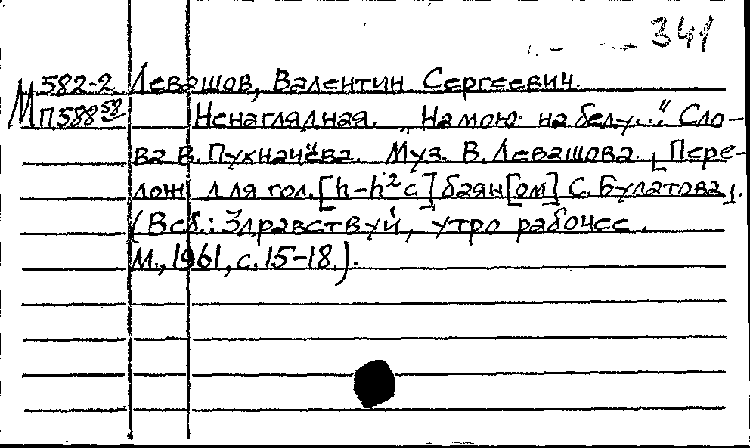 341
582-2 Левашов, Валентин Сергеевич.
М П588 58 Ненаглядная. „На мою на белу..." Сло-
ва В. Пухначёва. Муз. В. Левашова. [Пере-
лож. для гол. [h-h²c] баян[ом] С. Булатова].
(В сб.: Здравствуй, утро рабочее.
М., 1961, с. 15-18.).